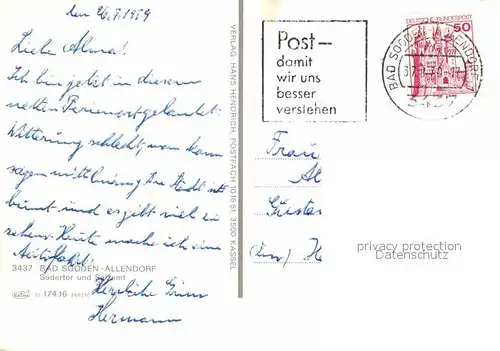 den 26.7.1979
Liebe Alma!
Ich bin jetzt in diesem
netten Ferienort gelandet.
Witterung schlecht, man kann
sagen mittelmäßig. Die Stadt ist
bunt und es gibt viel zu
sehen. Heute mache ich eine
Autofahrt.
Herzliche Grüße
Hermann
3437 BAD SOODEN-ALLENDORF
Södertor und
H 174.16
VERLAG HANS HENDRICH, POSTFACH 101651, 3500 KASSEL
Post –
damit
wir uns
besser
verstehen
BAD SOODEN-ALLENDORF
3437
DEUTSCHE BUNDESPOST
50
Frau
Al
Gustav
He
privacy protection
Datenschutz